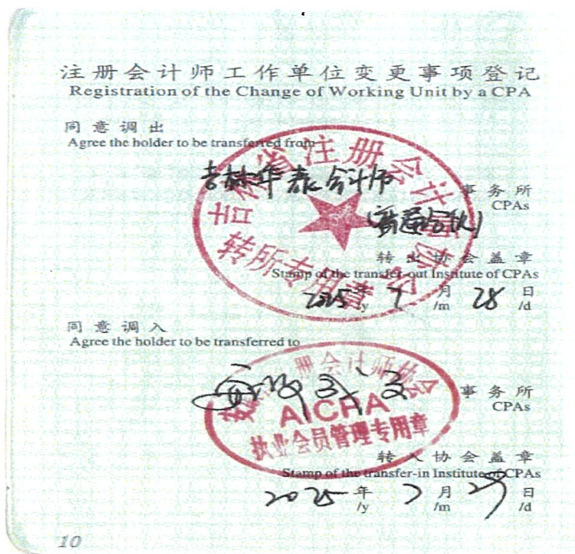 注册会计师工作单位变更事项登记
Registration of the Change of Working Unit by a CPA
同意调出
Agree the holder to be transferred from
吉林省注册会计师协会
吉林华表会计师
事务所
CPAs
(普通合伙)
转所专用章
转出协会盖章
Stamp of the transfer-out Institute of CPAs
2025 年 7 月 28 日
/y /m /d
同意调入
Agree the holder to be transferred to
注册会计师协会
事务所
CPAs
AICPA
执业会员管理专用章
转入协会盖章
Stamp of the transfer-in Institute of CPAs
2025 年 7 月 29 日
/y /m /d
10